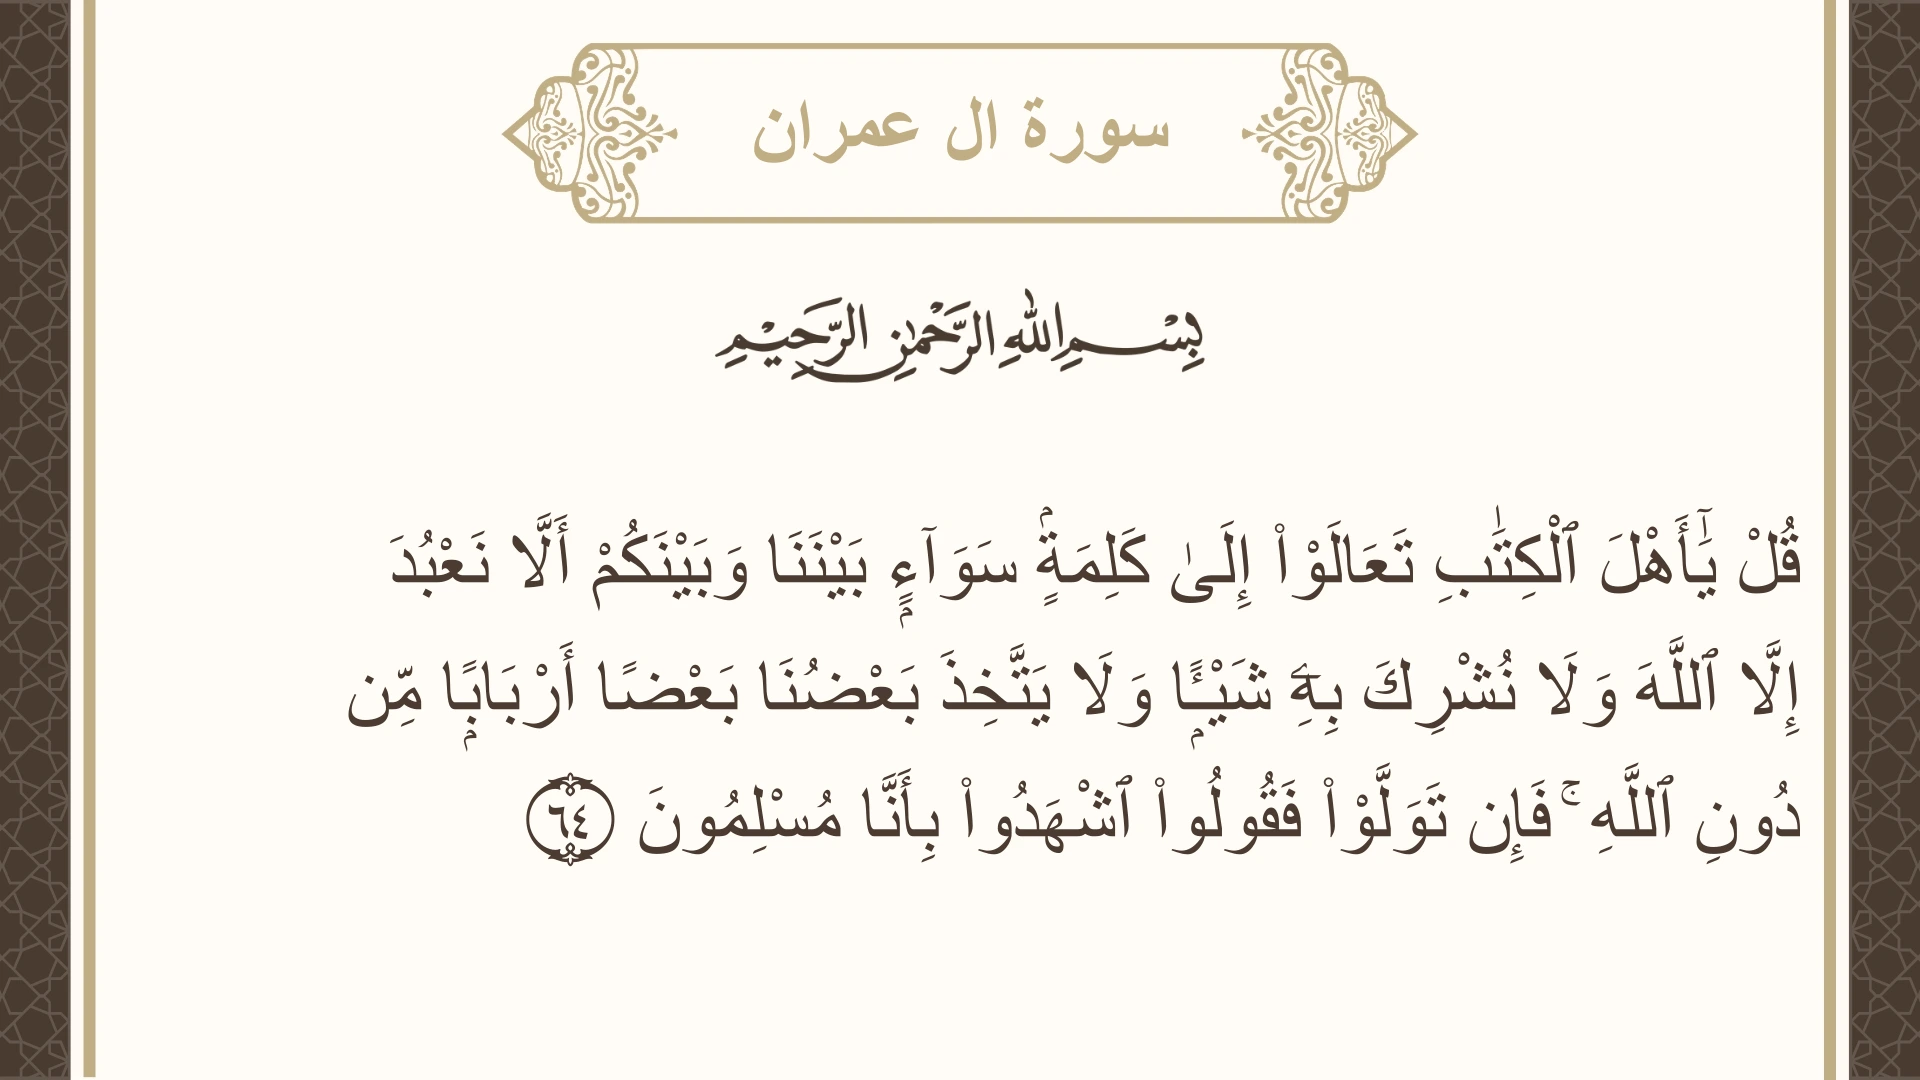 سورة ال عمران
بِسْمِ اللهِ الرَّحْمٰنِ الرَّحِيْمِ
قُلْ يَٰٓأَهْلَ ٱلْكِتَٰبِ تَعَالَوْا۟ إِلَىٰ كَلِمَةٍۢ سَوَآءٍۭ بَيْنَنَا وَبَيْنَكُمْ أَلَّا نَعْبُدَ
إِلَّا ٱللَّهَ وَلَا نُشْرِكَ بِهِۦ شَيْـًۭٔا وَلَا يَتَّخِذَ بَعْضُنَا بَعْضًا أَرْبَابًۭا مِّن
دُونِ ٱللَّهِ ۚ فَإِن تَوَلَّوْا۟ فَقُولُوا۟ ٱشْهَدُوا۟ بِأَنَّا مُسْلِمُونَ ٦٤